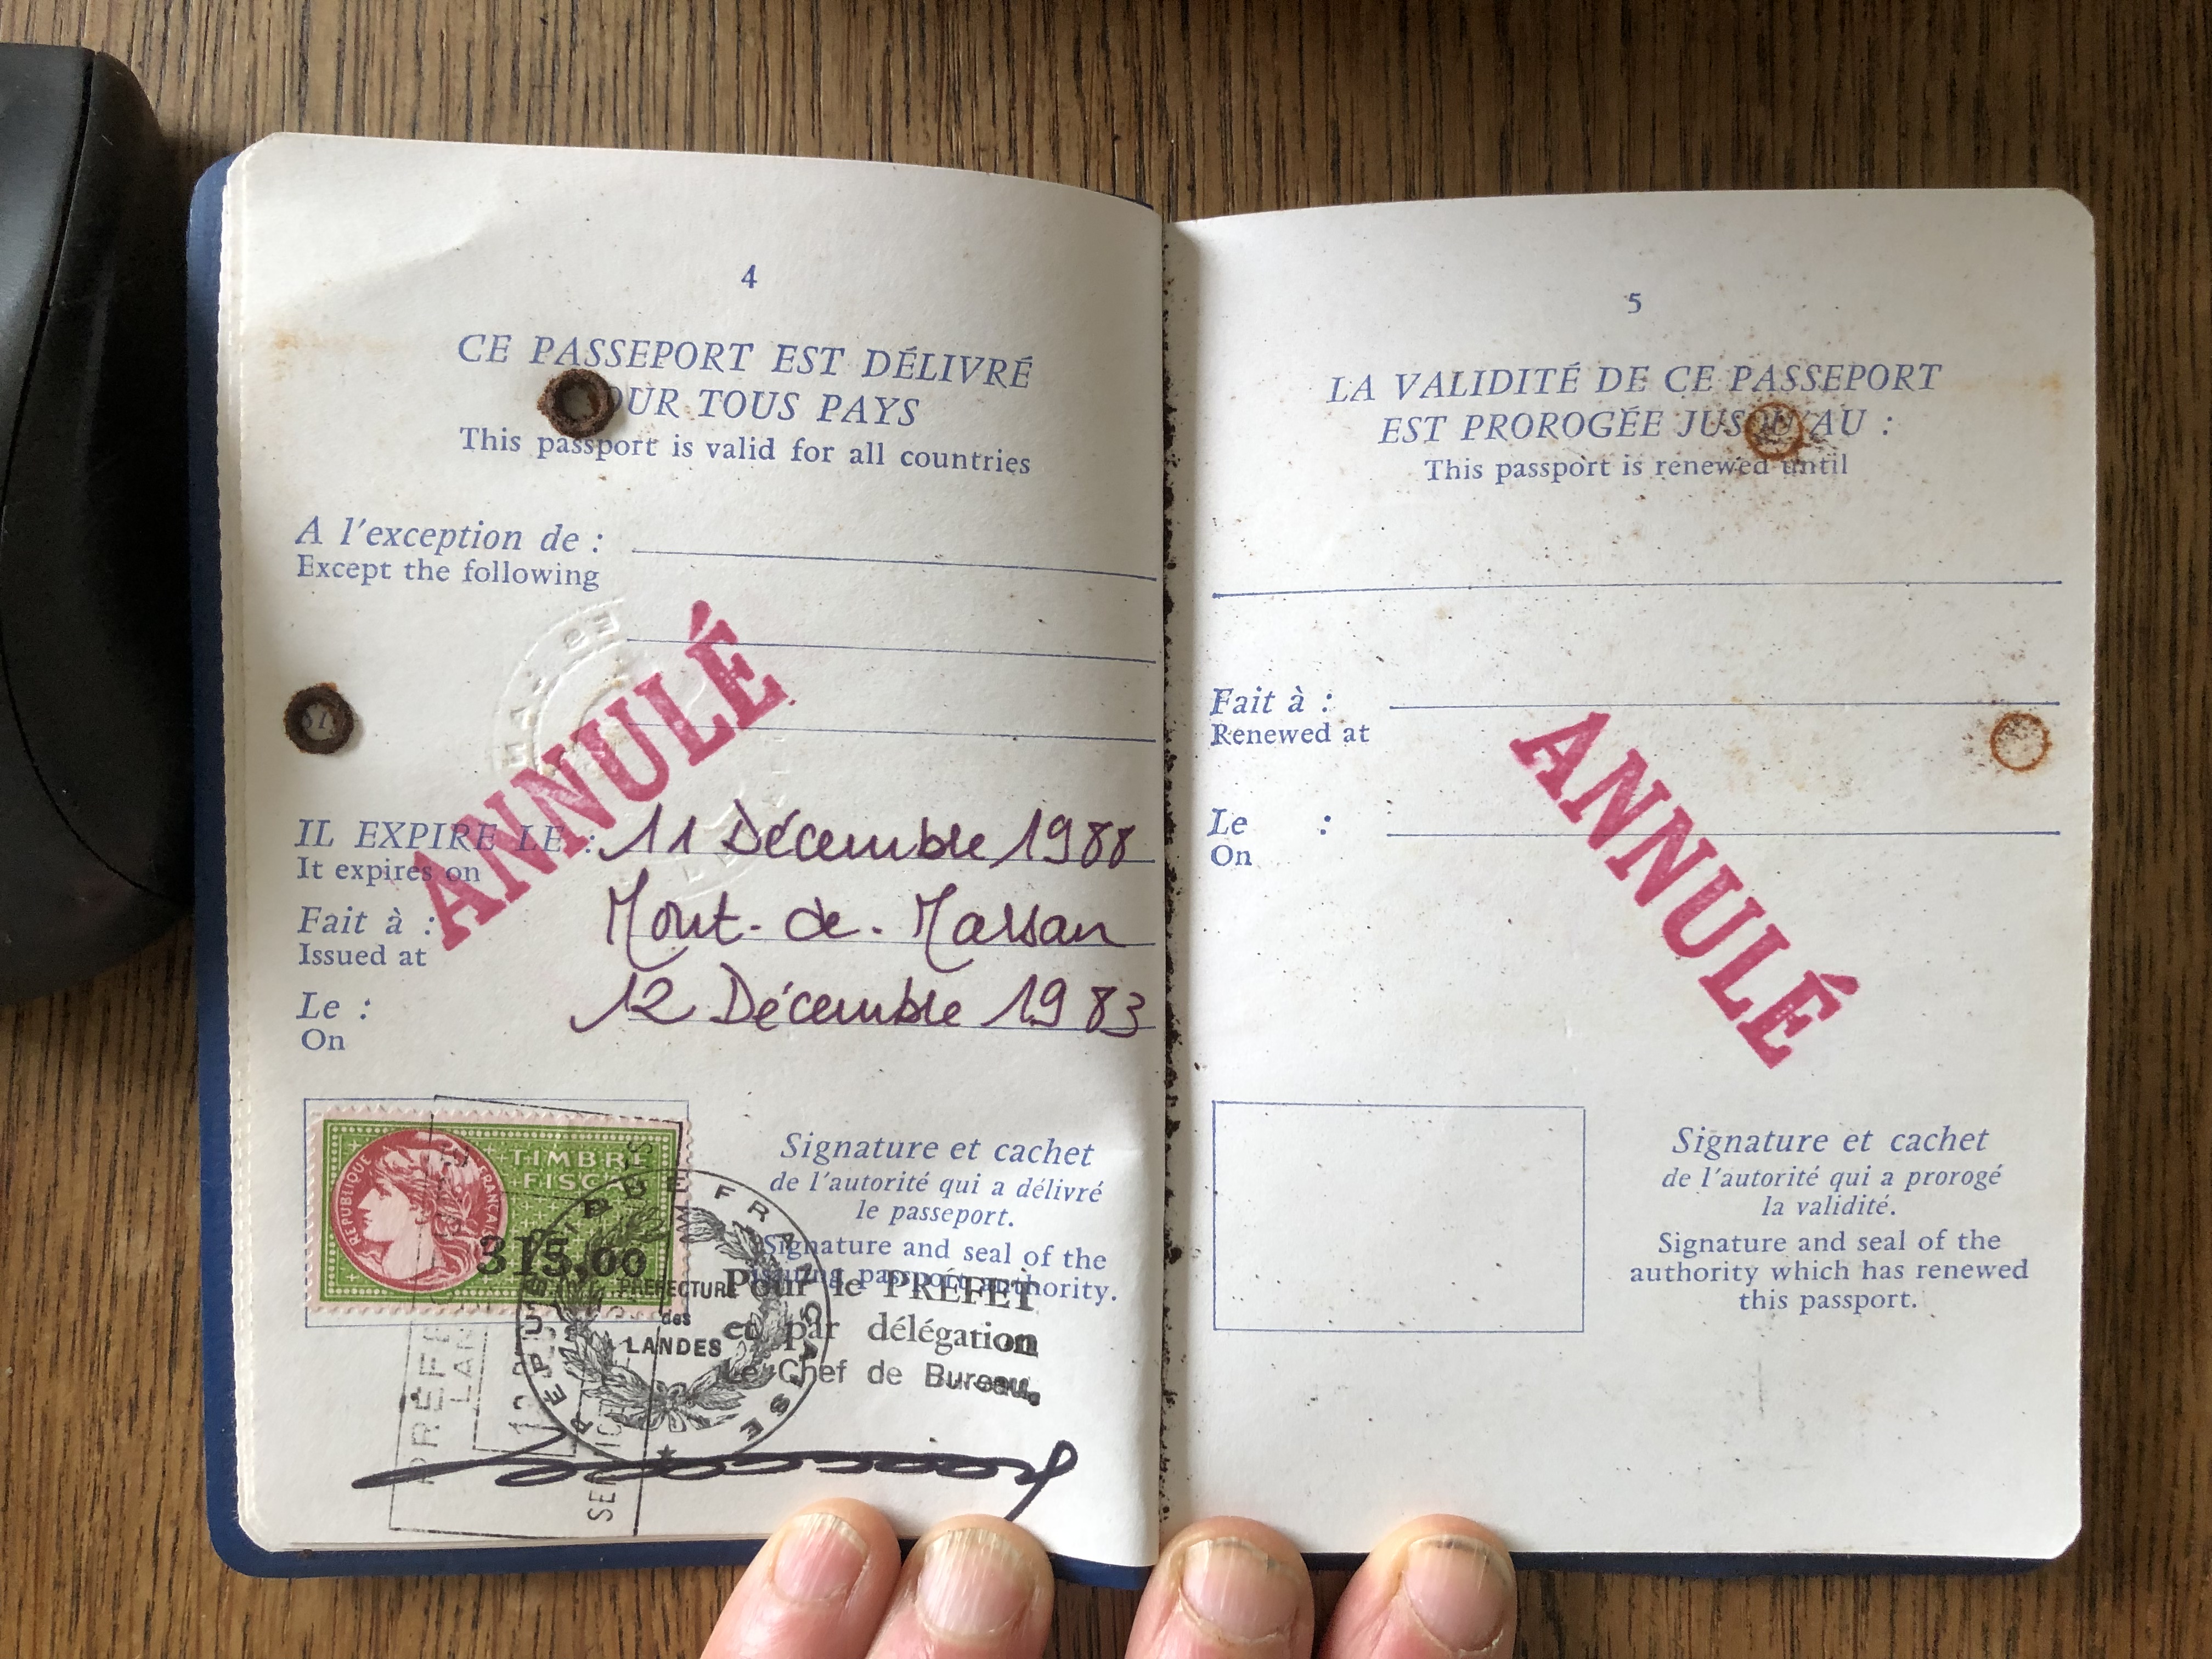 4
CE PASSEPORT EST DÉLIVRÉ
OUR TOUS PAYS
This passport is valid for all countries
A l'exception de :
Except the following
ANNULÉ
IL EXPIRE LE : 11 Décembre 1988
It expires on
Fait à : Mont-de-Marsan
Issued at
Le : 12 Décembre 1983
On
RÉPUBLIQUE FRANÇAISE
TIMBRE
FISCAL
315,00
Signature et cachet
de l'autorité qui a délivré
le passeport.
Signature and seal of the
issuing passport authority.
RÉPUBLIQUE FRANÇAISE
PRÉFECTURE
des
LANDES
Pour le PRÉFET
et par délégation
Le Chef de Bureau,
5
LA VALIDITÉ DE CE PASSEPORT
EST PROROGÉE JUSQU'AU :
This passport is renewed until
Fait à :
Renewed at
Le :
On
ANNULÉ
Signature et cachet
de l'autorité qui a prorogé
la validité.
Signature and seal of the
authority which has renewed
this passport.